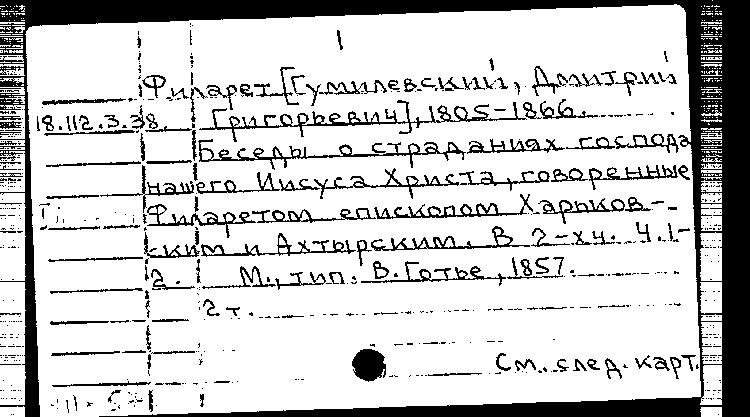 Филарет [Гумилевский, Дмитрий
18.112.3.38. Григорьевич], 1805-1866.
Беседы о страданиях господа
нашего Иисуса Христа, говоренные
Филаретом епископом Харьков-
ским и Ахтырским. В 2-х ч. Ч.1-
2. М., тип. В.Готье, 1857.
2 т.
См. след. карт.